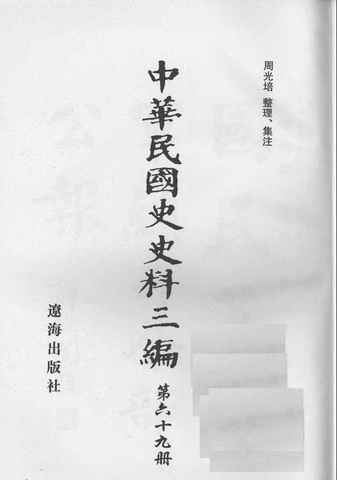 周光培 整理、集注
中華民國史史料三編
第六十九册
遼海出版社